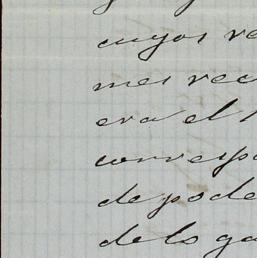 cuyos re
mes rec
era el
corresp
de pode
dels ga